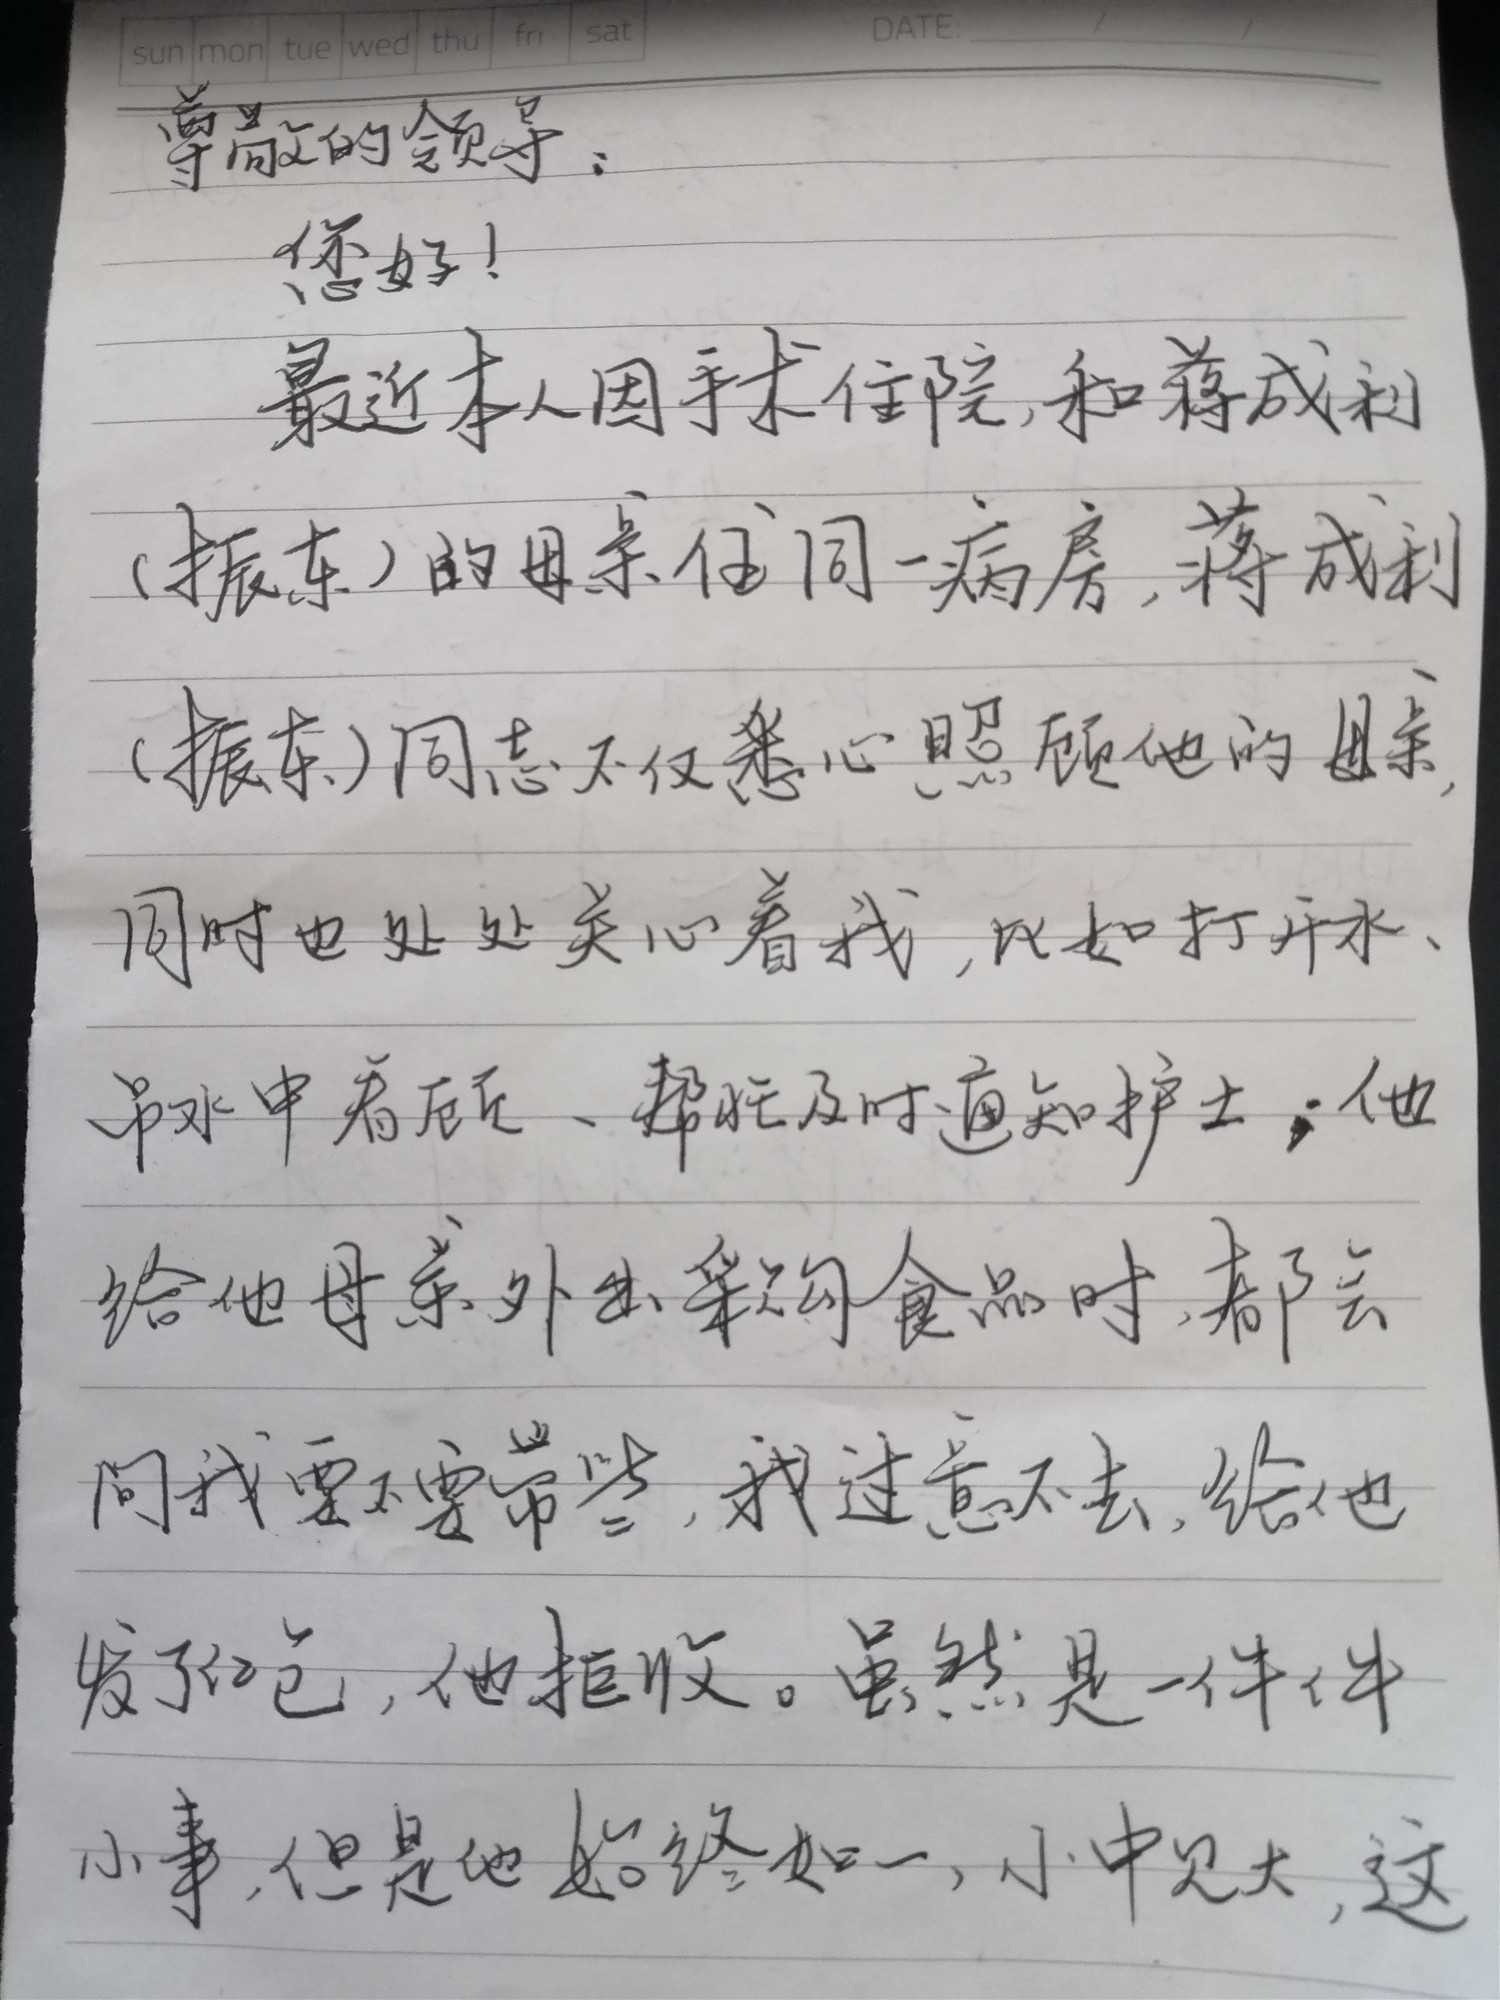 sun mon tue wed thu fri sat DATE: / /
尊敬的领导：
您好！
最近本人因手术住院，和蒋成利
（振东）的母亲住同一病房，蒋成利
（振东）同志不仅悉心照顾他的母亲，
同时也处处关心着我，比如打开水、
吊水中看顾、帮忙及时通知护士；他
给他母亲外出采购食品时，都会
问我要不要带些，我过意不去，给他
发了红包，他拒收。虽然是一件件
小事，但是他始终如一，小中见大，这